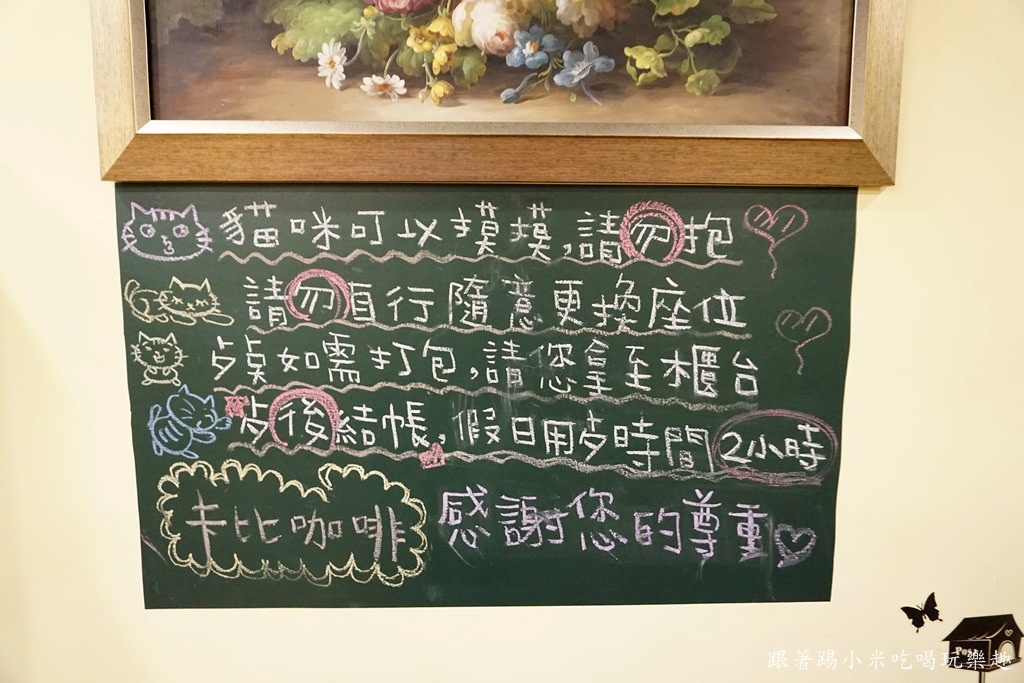 貓咪可以摸摸,請勿抱
請勿自行隨意更換座位
歺點如需打包,請您拿至櫃台
歺後結帳,假日用歺時間2小時
卡比咖啡
感謝您的尊重
跟著踢小米吃喝玩樂趣